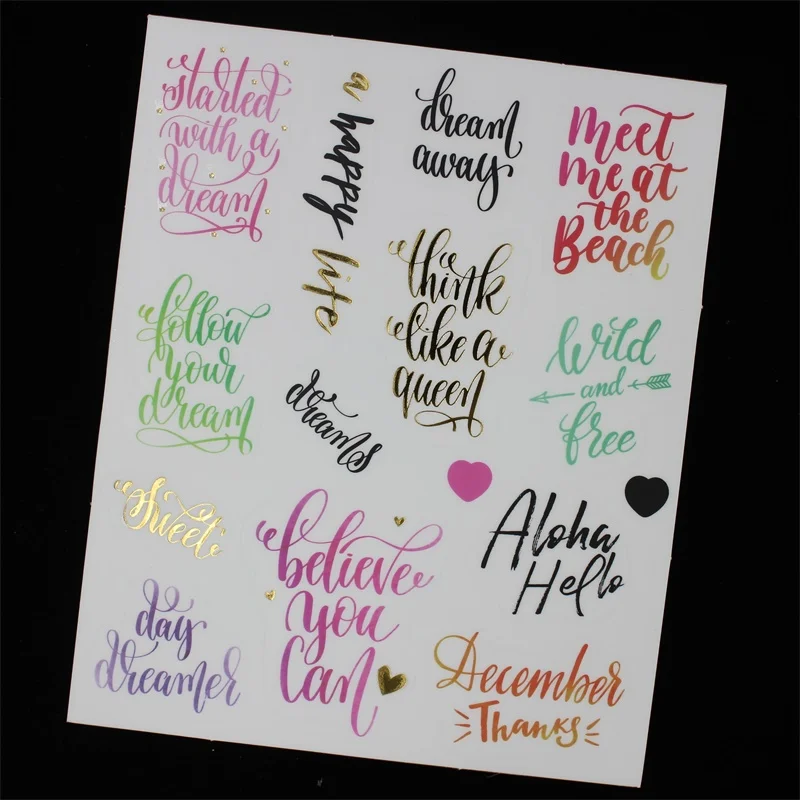 started
with a
dream
a happy life
dream
away
meet
me at
the
Beach
follow
your
dream
think
like a
queen
Wild
and
free
dreams
Sweet
believe
you
Can
Aloha
Hello
day
dreamer
December
Thanks